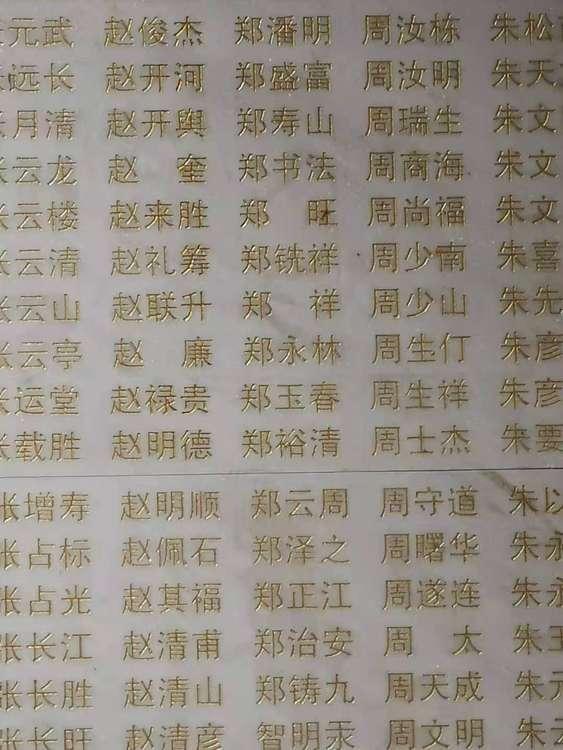 元武 赵俊杰 郑潘明 周汝栋 朱松
远长 赵开河 郑盛富 周汝明 朱天
月清 赵开舆 郑寿山 周瑞生 朱文
张云龙 赵 奎 郑书法 周商海 朱文
张云楼 赵来胜 郑 旺 周尚福 朱文
张云清 赵礼筹 郑铣祥 周少南 朱喜
张云山 赵联升 郑 祥 周少山 朱先
张云亭 赵 廉 郑永林 周生仃 朱彦
张运堂 赵禄贵 郑玉春 周生祥 朱彦
张载胜 赵明德 郑裕清 周士杰 朱要
张增寿 赵明顺 郑云周 周守道 朱以
张占标 赵佩石 郑泽之 周曙华 朱永
张占光 赵其福 郑正江 周遂连 朱永
张长江 赵清甫 郑治安 周 太 朱玉
张长胜 赵清山 郑铸九 周天成 朱元
张长旺 赵清彦 智明汞 周文明 朱云